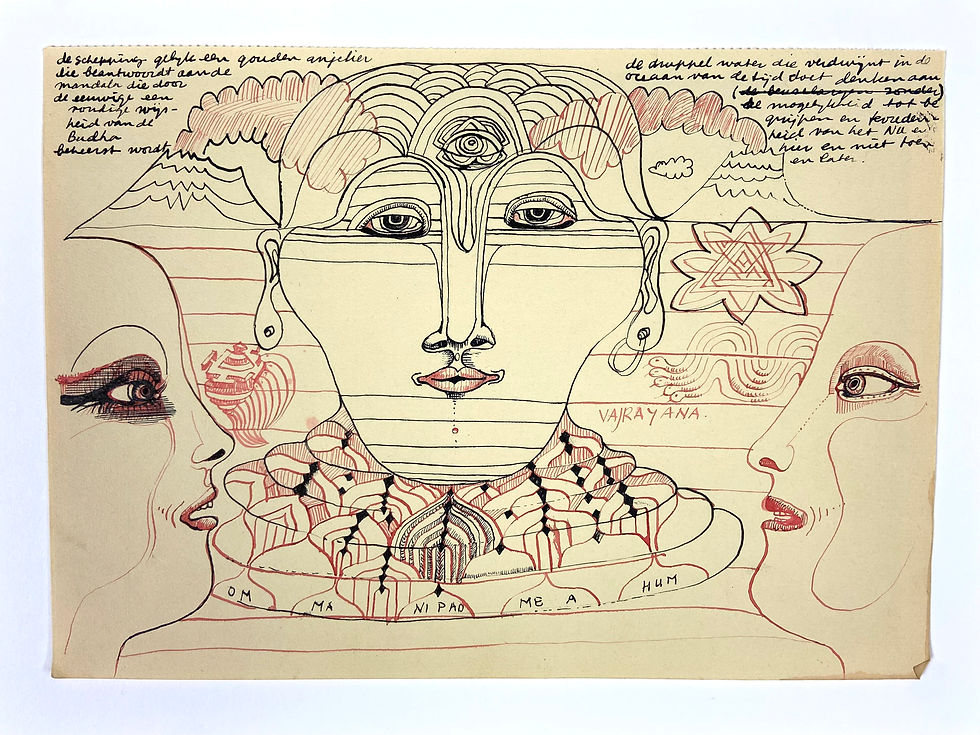 de schepping gelijk een gouden anjelier
die beantwoordt aan de
mandala die door
de eeuwige een
voudige wijs-
heid van de
Budha
beheerst wordt
de druppel water die verdwijnt in de
oceaan van de tijd doet denken aan
(
de mogelijkheid tot be
grijpen en
heid van het NU en
hier en niet toen
en later.
VAJRAYANA.
OM MA NI PAD ME A HUM